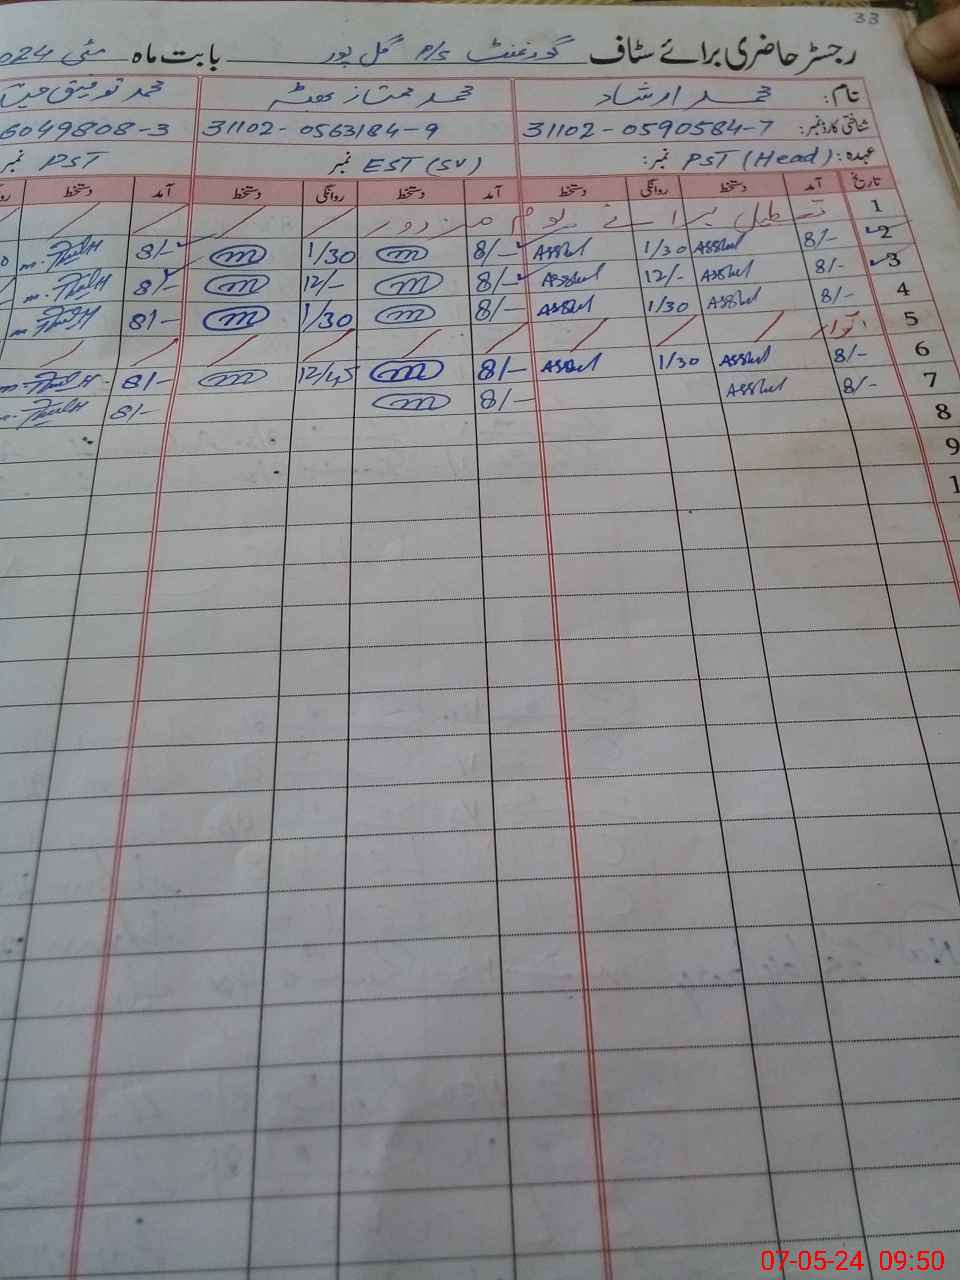 33
رجسٹر حاضری برائے سٹاف گورنمنٹ P/S گل پور بابت ماہ مئی 024
نام: محمد ارشاد محمد ممتاز بھٹہ محمد توفیق
شناختی کارڈ نمبر: 31102-0590584-7 31102-0563184-9 6049808-3
عہدہ: PST (Head) نمبر: EST (SV) نمبر PST نمبر
تاریخ آمد دستخط روانگی دستخط آمد دستخط روانگی دستخط آمد دستخط
1 تعطیل برائے یوم مزدور
2 8/- Asshul 1/30 Asshul 8/- m 1/30 m 8/-
3 8/- Asshul 12/- Asshul 8/- m 12/- m 8/-
4 8/- Asshul 1/30 Asshul 8/- m 1/30 m 8/-
5 اتوار
6 8/- Asshul 1/30 Asshul 8/- m 12/45 m 8/-
7 8/- Asshul 8/- m 8/-
8
9
1
07-05-24 09:50